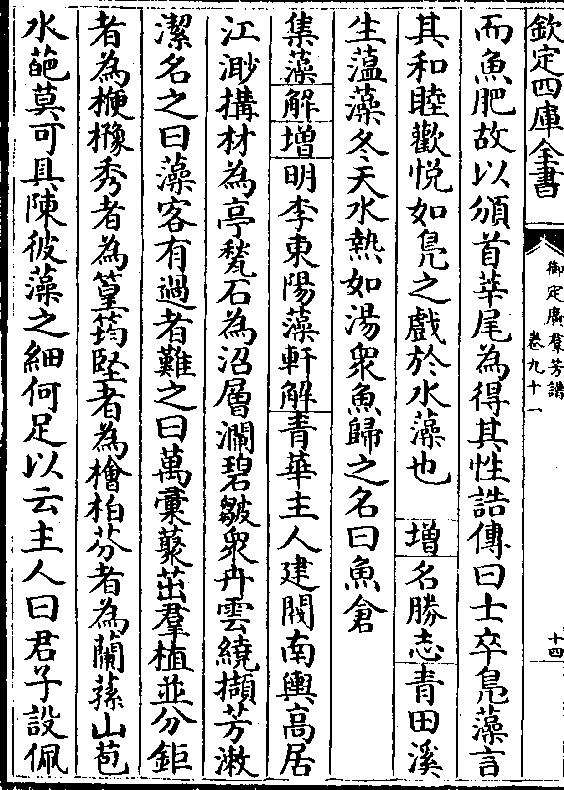 欽定四庫全書
御定廣羣芳譜
卷九十一
十四
而魚肥故以頒首莘尾為得其性誥傳曰士卒鳧藻言
其和睦歡悅如鳧之戲於水藻也 增 名勝志青田溪
生蕰藻冬天水熱如湯衆魚歸之名曰魚倉
集藻 解 增 明李東陽藻軒解 青華主人建閥南輿高居
江渺搆材為亭甃石為沼層瀾碧皺衆卉雲繞擷芳漱
潔名之曰藻客有過者難之曰萬彚蕞茁羣植並分鉅
者為楩櫲秀者為篁筠堅者為檜柏芬者為蘭蓀山苞
水葩莫可具陳彼藻之細何足以云主人曰君子設佩